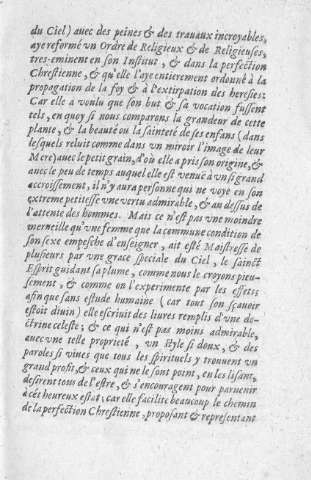 du Ciel) avec des peines & des travaux incroyables,
aye reformé un Ordre de Religieux & de Religieuses,
tres-eminent en son Institut, & dans la perfection
Chrestienne, & qu'elle l'aye entierement ordonné à la
propagation de la foy & à l'extirpation des heresies:
Car elle a voulu que son but & sa vocation fussent
tels, en quoy si nous comparons la grandeur de cette
plante, & la beauté ou la sainteté de ses enfans (dans
lesquels reluit comme dans un miroir l'image de leur
Mere) avec le petit grain, d'où elle a pris son origine, &
avec le peu de temps auquel elle est venuë à un si grand
accroissement, il n'y aura personne qui ne voye en son
extreme petitesse une vertu admirable, & au dessus de
l'attente des hommes. Mais ce n'est pas une moindre
merveille qu'une femme que la commune condition de
son sexe empesche d'enseigner, ait esté Maistresse de
plusieurs par une grace speciale du Ciel, le sainct
Esprit guidant sa plume, comme nous le croyons pieu-
sement, & comme on l'experimente par les effets;
afin que sans estude humaine (car tout son sçavoir
estoit divin) elle escrivit des livres remplis d'une do-
ctrine celeste; & ce qui n'est pas moins admirable,
avec une telle proprieté, un style si doux, & des
paroles si vives que tous les spirituels y trouvent un
grand profit, & ceux qui ne le sont point, en les lisant,
desirent tous de l'estre, & s'encouragent pour parvenir
à cét heureux estat; car elle facilite beaucoup le chemin
de la perfection Chrestienne, proposant & representant